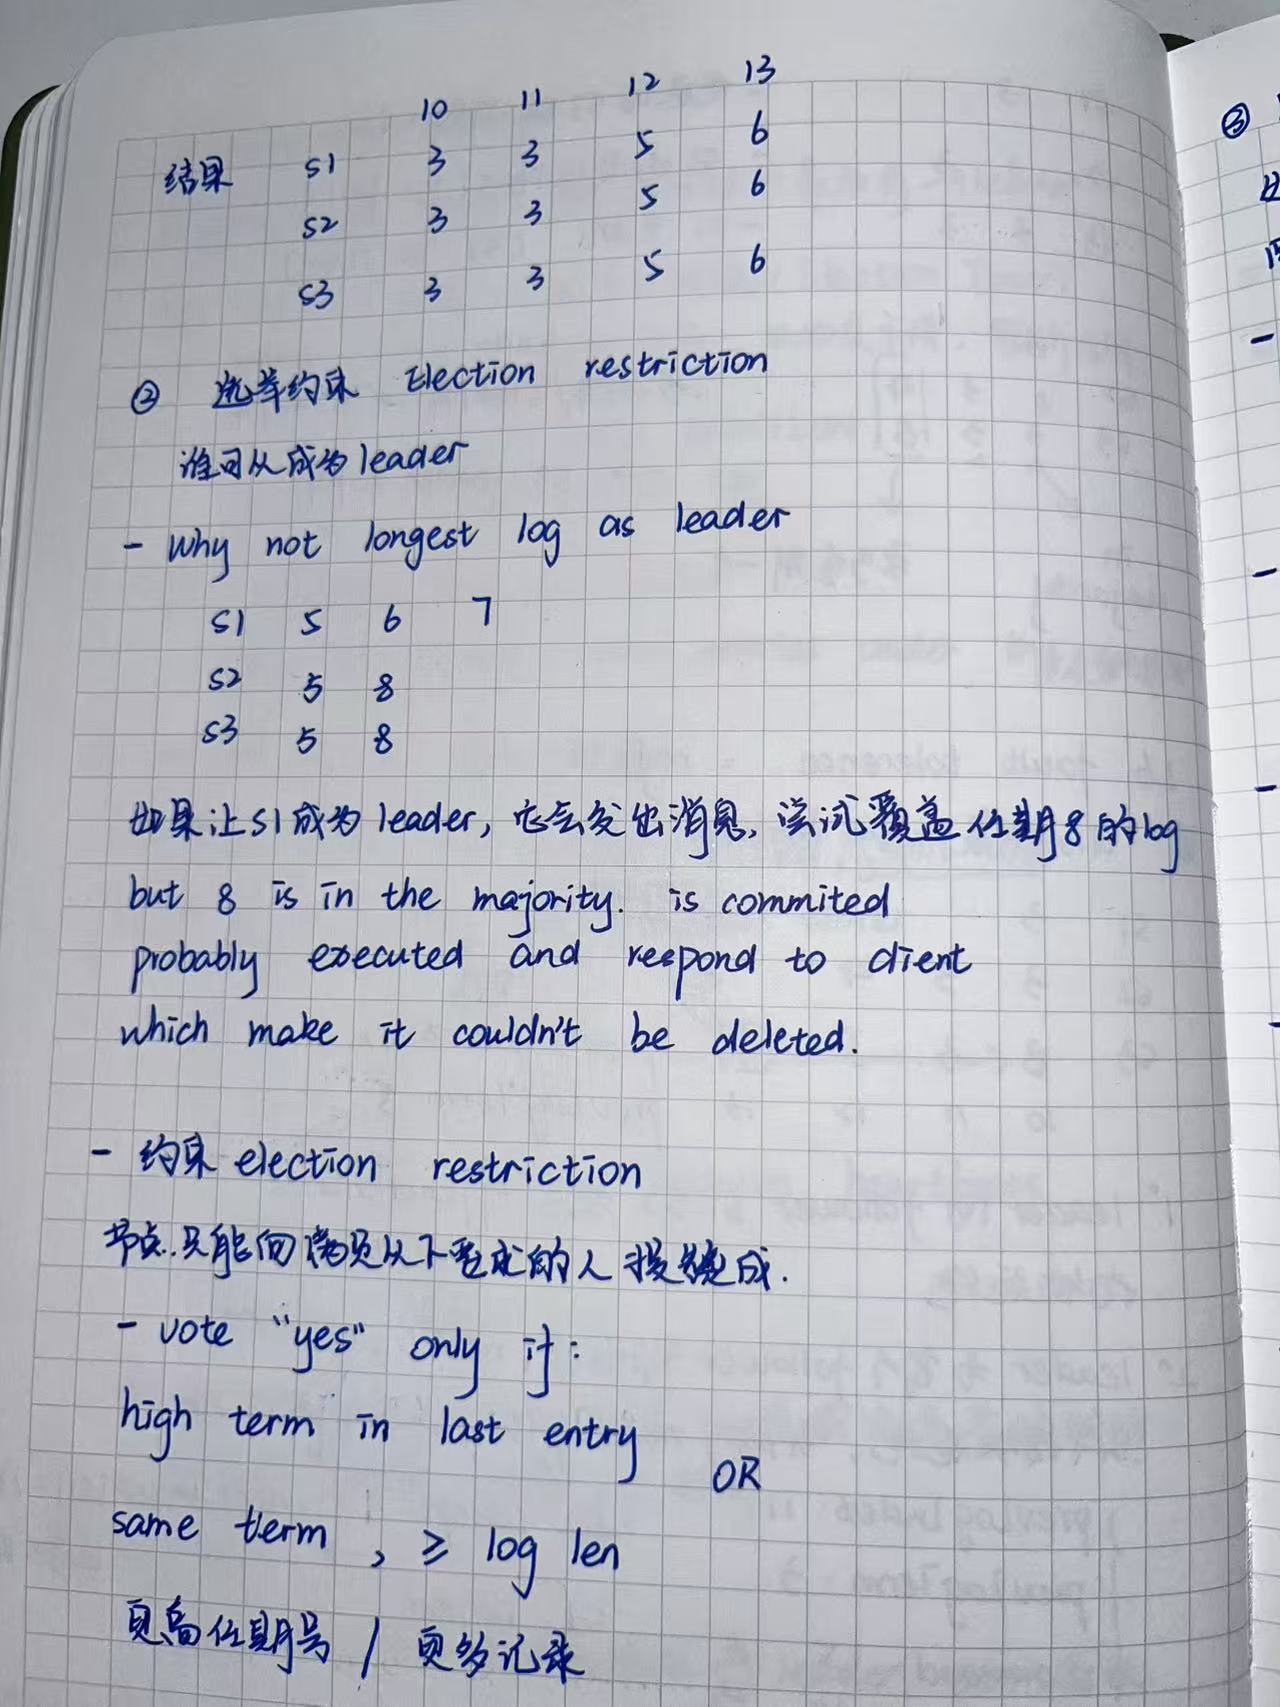 10 11 12 13
结果 S1 3 3 5 6
S2 3 3 5 6
S3 3 3 5 6
② 选举约束 Election restriction
谁可以成为leader
- Why not longest log as leader
S1 5 6 7
S2 5 8
S3 5 8
如果让S1成为leader, 它会发出消息, 尝试覆盖任期8的log
but 8 is in the majority. is commited
probably executed and respond to client
which make it couldn't be deleted.
- 约束 election restriction
节点只能向满足以下要求的人投赞成.
- vote "yes" only if:
high term in last entry
OR
same term , ≥ log len
更高任期号 / 更多记录
③